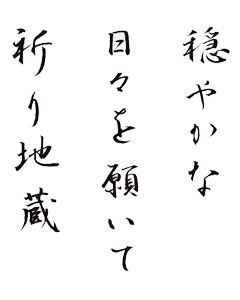 穏やかな
日々を願いて
祈り地蔵